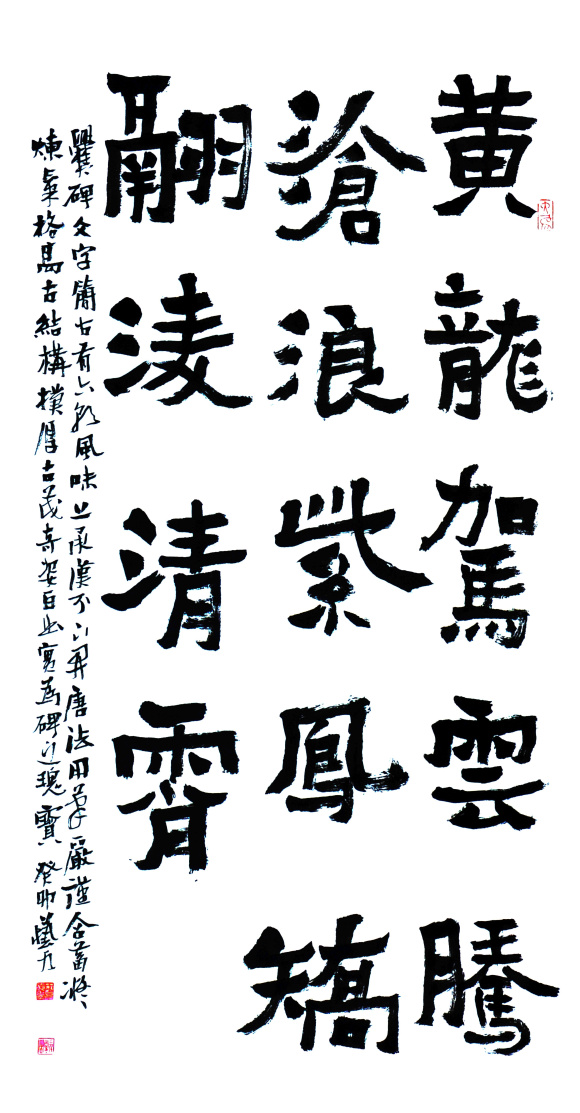 黄龍駕雲騰
滄浪紫鳳矯
翮淩清霄
爨碑文字簡古有六朝風味上承漢不下開唐法用筆嚴謹含蓄將
煉氣格高古結構撲厚古茂奇姿百出實為碑之瑰寶癸卯藝九